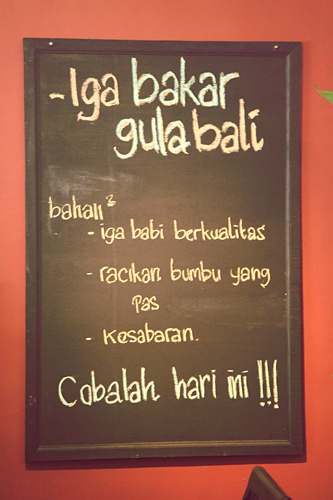 - Iga bakar
gula bali
bahan²
- iga babi berkualitas
- racikan bumbu yang
pas
- Kesabaran.
Cobalah hari ini !!!